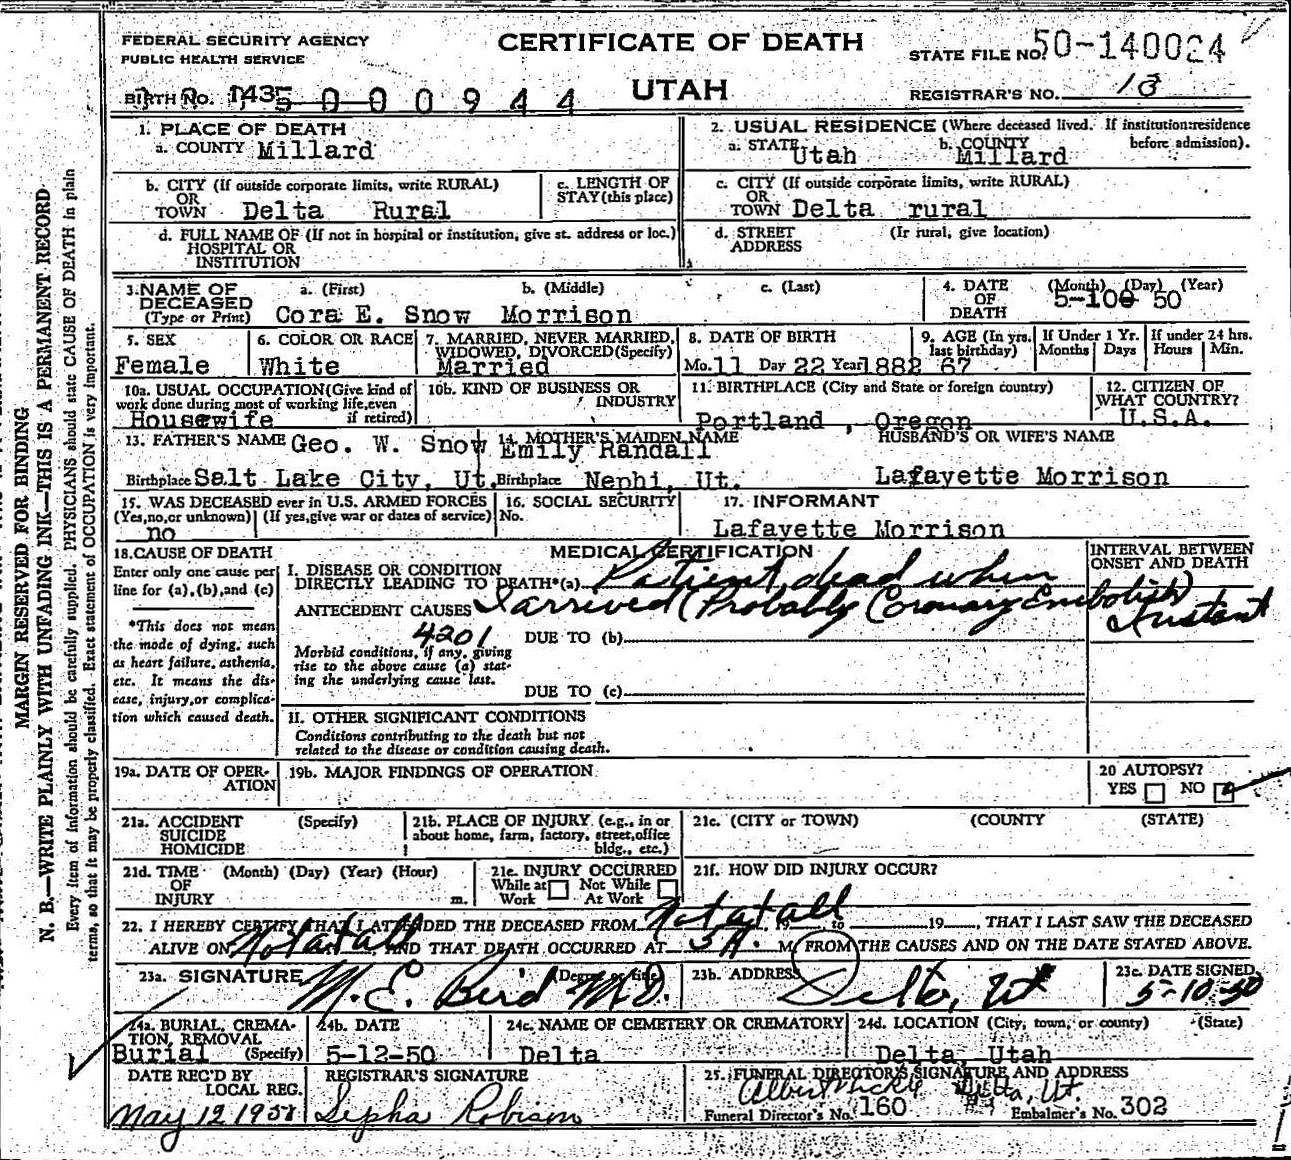 FEDERAL SECURITY AGENCY
PUBLIC HEALTH SERVICE
CERTIFICATE OF DEATH
UTAH
STATE FILE NO. 50-140024
REGISTRAR'S NO. 13
BIRTH No. 1435 0 0 0 0 9 4 4
MARGIN RESERVED FOR BINDING
N. B.—WRITE PLAINLY WITH UNFADING INK—THIS IS A PERMANENT RECORD
Every item of information should be carefully supplied. PHYSICIANS should state CAUSE OF DEATH in plain
terms, so that it may be properly classified. Exact statement of OCCUPATION is very important.
1. PLACE OF DEATH
a. COUNTY Millard
2. USUAL RESIDENCE (Where deceased lived. If institution:residence
before admission).
a. STATE Utah b. COUNTY Millard
b. CITY (If outside corporate limits, write RURAL)
OR
TOWN Delta Rural
c. LENGTH OF
STAY (this place)
c. CITY (If outside corporate limits, write RURAL)
OR
TOWN Delta rural
d. FULL NAME OF (If not in hospital or institution, give st. address or loc.)
HOSPITAL OR
INSTITUTION
d. STREET (If rural, give location)
ADDRESS
3. NAME OF
DECEASED
(Type or Print)
a. (First) b. (Middle) c. (Last)
Cora E. Snow Morrison
4. DATE
OF
DEATH
(Month) (Day) (Year)
5-10 50
5. SEX
Female
6. COLOR OR RACE
White
7. MARRIED, NEVER MARRIED,
WIDOWED, DIVORCED (Specify)
Married
8. DATE OF BIRTH
Mo. 11 Day 22 Year 1882
9. AGE (In yrs.
last birthday)
67
If Under 1 Yr.
Months Days
If under 24 hrs.
Hours Min.
10a. USUAL OCCUPATION (Give kind of
work done during most of working life, even
if retired)
Housewife
10b. KIND OF BUSINESS OR
INDUSTRY
11. BIRTHPLACE (City and State or foreign country)
Portland , Oregon
12. CITIZEN OF
WHAT COUNTRY?
U.S.A.
13. FATHER'S NAME Geo. W. Snow
Birthplace Salt Lake City, Ut.
14. MOTHER'S MAIDEN NAME
Emily Randall
Birthplace Nephi, Ut.
HUSBAND'S OR WIFE'S NAME
Lafayette Morrison
15. WAS DECEASED ever in U.S. ARMED FORCES
(Yes, no, or unknown) (If yes, give war or dates of service)
no
16. SOCIAL SECURITY
No.
17. INFORMANT
Lafayette Morrison
18. CAUSE OF DEATH
Enter only one cause per
line for (a), (b), and (c)
*This does not mean
the mode of dying, such
as heart failure, asthenia,
etc. It means the dis-
ease, injury, or complica-
tion which caused death.
MEDICAL CERTIFICATION
I. DISEASE OR CONDITION
DIRECTLY LEADING TO DEATH*(a) Patient dead when
ANTECEDENT CAUSES I arrived (Probably Coronary Embolish)
4201
DUE TO (b)
Morbid conditions, if any, giving
rise to the above cause (a) stat-
ing the underlying cause last.
DUE TO (c)
INTERVAL BETWEEN
ONSET AND DEATH
Instant
II. OTHER SIGNIFICANT CONDITIONS
Conditions contributing to the death but not
related to the disease or condition causing death.
19a. DATE OF OPER-
ATION
19b. MAJOR FINDINGS OF OPERATION
20 AUTOPSY?
YES NO
21a. ACCIDENT (Specify)
SUICIDE
HOMICIDE
21b. PLACE OF INJURY (e.g., in or
about home, farm, factory, street, office
bldg., etc.)
21c. (CITY or TOWN) (COUNTY) (STATE)
21d. TIME (Month) (Day) (Year) (Hour)
OF
INJURY m.
21e. INJURY OCCURRED
While at Work Not While At Work
21f. HOW DID INJURY OCCUR?
22. I HEREBY CERTIFY THAT I ATTENDED THE DECEASED FROM Not at all, 19 to 19, THAT I LAST SAW THE DECEASED
ALIVE ON Not at all, AND THAT DEATH OCCURRED AT 5 A. M., FROM THE CAUSES AND ON THE DATE STATED ABOVE.
23a. SIGNATURE (Degree or title)
M. E. Bird M.D.
23b. ADDRESS
Delta, Ut
23c. DATE SIGNED
5-10-50
24a. BURIAL, CREMA-
TION, REMOVAL
Burial (Specify)
24b. DATE
5-12-50
24c. NAME OF CEMETERY OR CREMATORY
Delta
24d. LOCATION (City, town, or county) (State)
Delta, Utah
DATE REC'D BY
LOCAL REG.
May 12 1950
REGISTRAR'S SIGNATURE
Sepha Robison
25. FUNERAL DIRECTOR'S SIGNATURE AND ADDRESS
Albert Mickle Delta, Ut.
Funeral Director's No. 160 Embalmer's No. 302